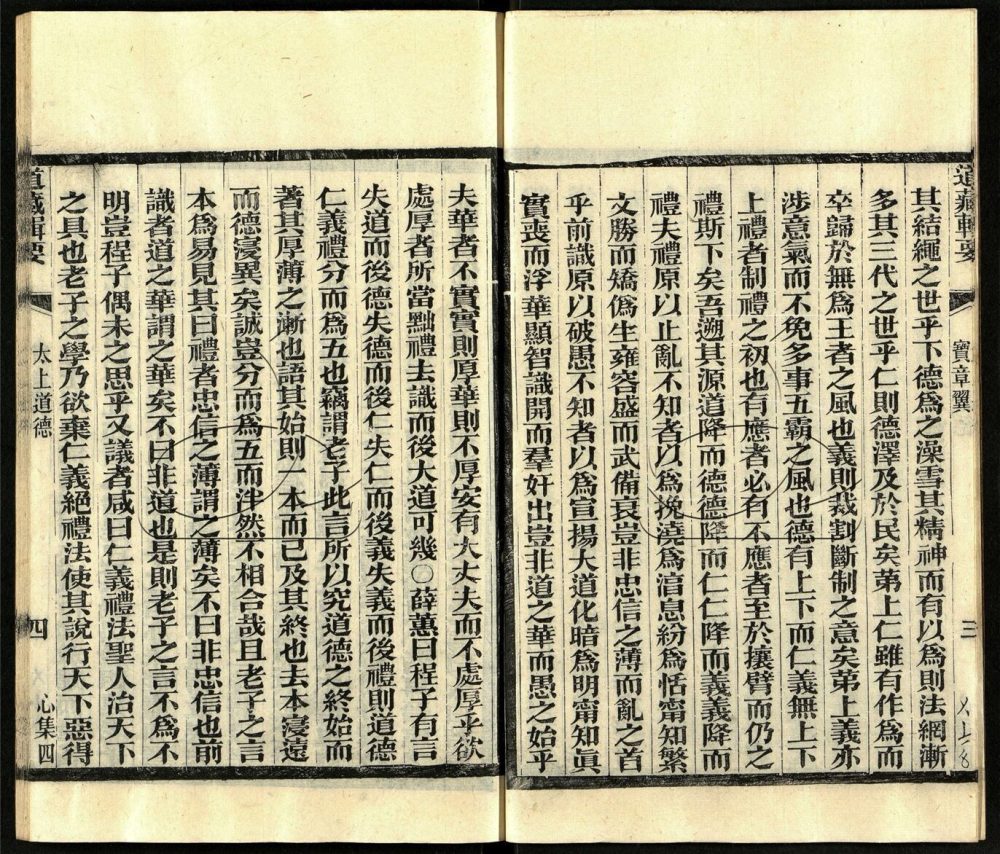 道藏輯要
寶章翼
三
其結繩之世乎下德爲之澡雪其精神而有以爲則法網漸
多其三代之世乎仁則德澤及於民矣第上仁雖有作爲而
卒歸於無爲王者之風也義則裁割斷制之意矣第上義亦
涉意氣而不免多事五霸之風也德有上下而仁義無上下
上禮者制禮之初也有應者必有不應者至於攘臂而仍之
禮斯下矣吾遡其源道降而德德降而仁仁降而義義降而
禮夫禮原以止亂不知者以爲挽澆爲淳息紛爲恬甯知繁
文勝而矯僞生雍容盛而武備衰豈非忠信之薄而亂之首
乎前識原以破愚不知者以爲宣揚大道化暗爲明甯知眞
實喪而浮華顯智識開而羣奸出豈非道之華而愚之始乎
夫華者不實實則厚華則不厚安有大丈夫而不處厚乎欲
處厚者所當黜禮去識而後大道可幾〇薛蕙曰程子有言
失道而後德失德而後仁失仁而後義失義而後禮則道德
仁義禮分而爲五也竊謂老子此言所以究道德之終始而
著其厚薄之漸也語其始則一本而已及其終也去本寖遠
而德寖異矣誠豈分而爲五而泮然不相合哉且老子之言
本爲易見其曰禮者忠信之薄謂之薄矣不曰非忠信也前
識者道之華謂之華矣不曰非道也是則老子之言不爲不
明豈程子偶未之思乎又議者咸曰仁義禮法聖人治天下
之具也老子之學乃欲棄仁義絕禮法使其說行天下惡得
道藏輯要
太上道德
四
心集四